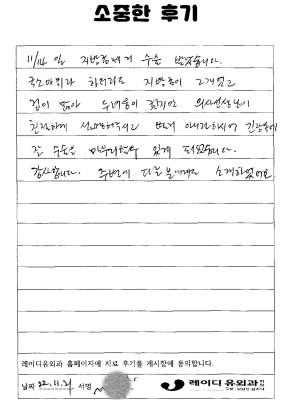 소중한 후기
11/14 일 지방종제거 수술 받았습니다.
국소마취라 하더라도 지방종이 2개였고
겁이 많아 두려움이 컸지만 의사선생님이
친절하게 설명해주시고
잘 수술을 마무리할수 있게 되었습니다.
감사합니다. 주변에 다른 분에게도 소개하였어요
레이디유외과 홈페이지에 치료 후기를 게시함에 동의합니다.
날짜 22.11.21 서명
레이디유외과